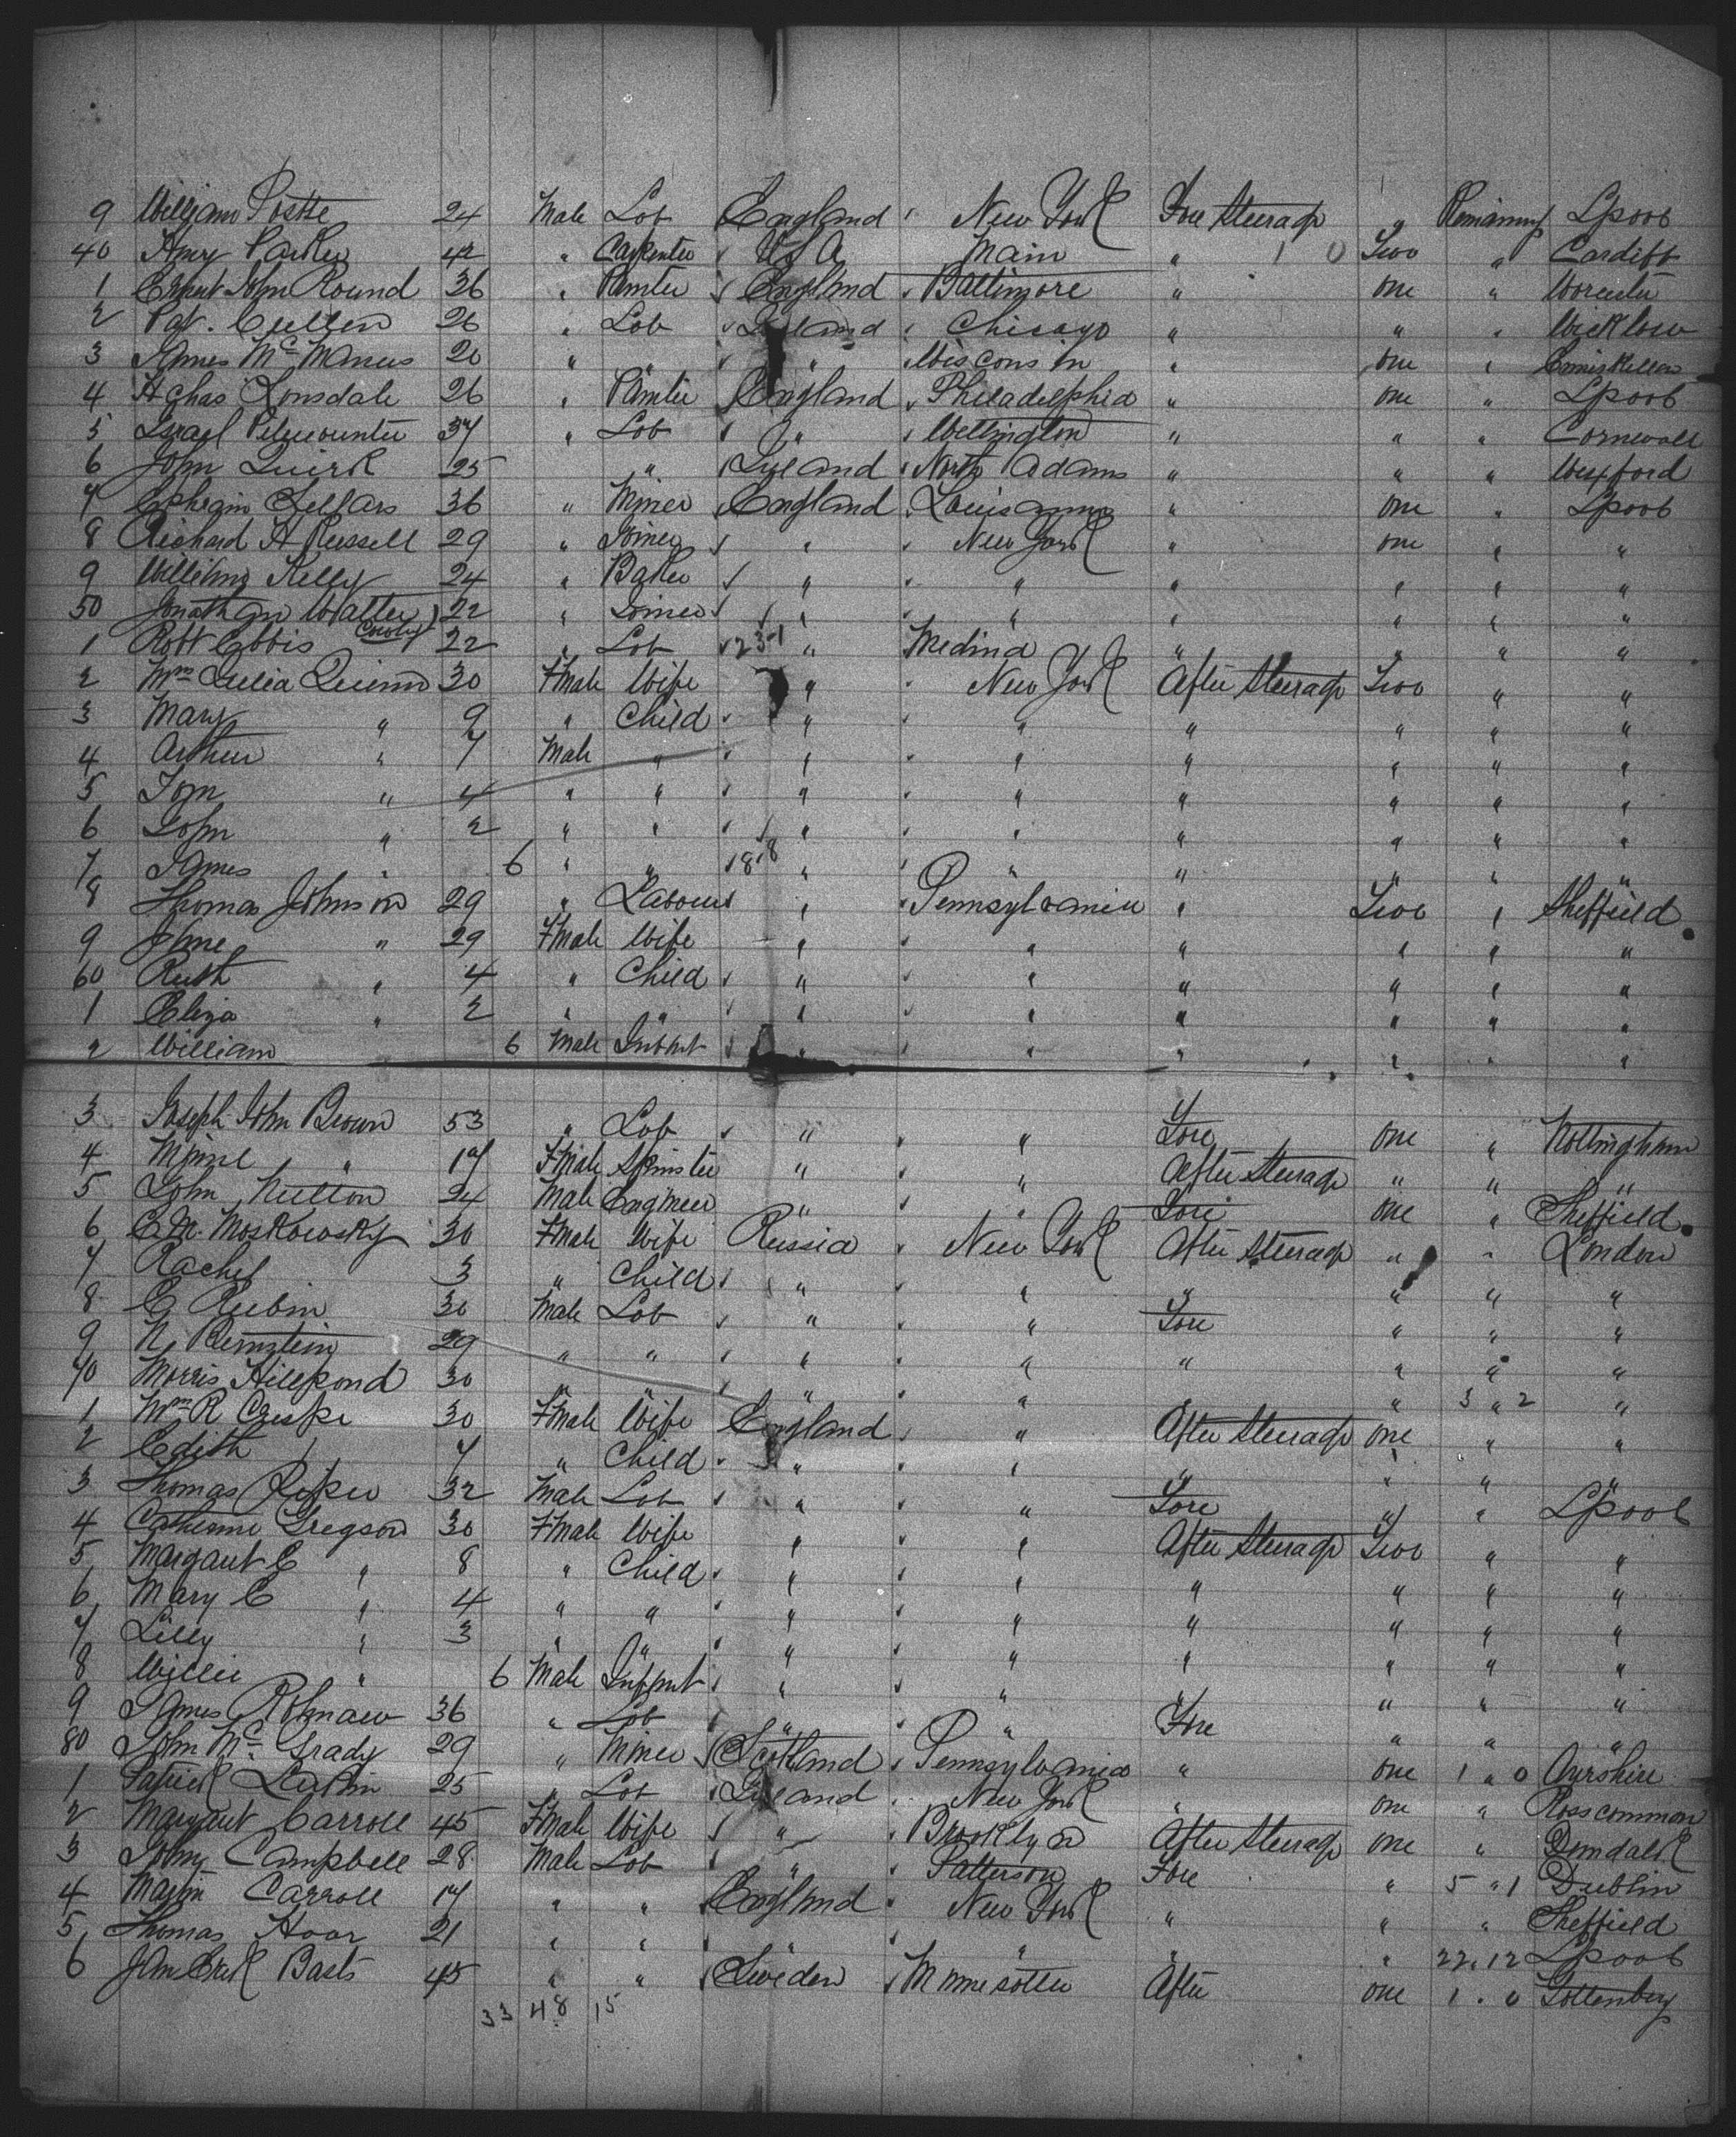 9 William Postle 24 Male Lab England " New York Fore Steerage " Remaining Lpool
40 Henry Parker 42 " Carpenter U S A Main " 1 0 Two " Cardiff
1 Ernest John Round 36 " Painter England Baltimore " one " Worcester
2 Pat. Cullen 26 " Lab Ireland Chicago " " " Wicklow
3 James McManus 20 " " " Wisconsin " one " Enniskillen
4 H Chas Lonsdale 26 " Painter England Philadelphia " one " Lpool
5 Israel 37 " Lab " Wellington " " " Cornwall
6 John Quirk 25 " Ireland North Adams " " " Wexford
7 Ephraim Sellars 36 " Miner England Louisanna " one " Lpool
8 Richard H Russell 29 " Joiner " New York " one " "
9 William Kelly 24 " Baker " " " " " "
50 Jonathan Walter 22 " Joiner " " " " " "
1 Robt Ebbis 22 " Lab 23-1 " Medina " " " "
2 Mrs Julia Quinn 30 Fmale Wife " New York After Steerage Two " "
3 Mary " 9 " Child " " " " " "
4 Arthur " 7 Male " " " " " " "
5 Tom " 4 " " " " " " " "
6 John " 2 " " " " " " " "
7 James " 6 " " 18-8 " " " " " "
8 Thomas Johnson 29 " Labour " Pennsylvania " Two " Sheffield
9 Jane " 29 Fmale Wife " " " " " "
60 Ruth " 4 " Child " " " " " "
1 Eliza " 2 " " " " " " " "
2 William 6 Male Infant " " " " " "
3 Joseph John Brown 53 " Lab " " Fore one " Nottingham
4 Minnie " 17 Fmale Spinster " " After Steerage " " "
5 John Hutton 24 Male Engineer " " Fore one " Sheffield
6 E.M. Moskowsky 30 Fmale Wife Russia New York After Steerage " " London
7 Rachel 3 " Child " " " " " "
8 C Rubin 30 Male Lab " " Fore " " "
9 N Bernstein 29 " " " " " " " "
70 Morris Hillpond 30 " " " " " 3 " 2 "
1 Mrs R Crespi 30 Fmale Wife England " After Steerage one " "
2 Edith " 7 " Child " " " " " "
3 Thomas Roper 32 Male Lab " " Fore " " Lpool
4 Catherine Gregson 30 Fmale Wife " " After Steerage Two " "
5 Margaret E " 8 " Child " " " " " "
6 Mary E " 4 " " " " " " " "
7 Lilly " 3 " " " " " " " "
8 Willie " 6 Male Infant " " " " " "
9 James 36 " Lab " " Fore " " "
80 John McGrady 29 " Miner Scotland Pennsylvania " one 1 " 0 Ayrshire
1 Patrick 25 " Lab Ireland New York " one " Rosscommon
2 Margaret Carroll 45 Fmale Wife " Brooklyn After Steerage one " Dundalk
3 John Campbell 28 Male Lab " Patterson Fore " 5 " 1 Dublin
4 Martin Carroll 17 " " England New York " " " Sheffield
5 Thomas Hoar 21 " " " " " " 22 . 12 Lpool
6 Jan Erik Basts 45 " " Sweden Minnesotta After one 1 . 0 Gottenberg
33 48 15